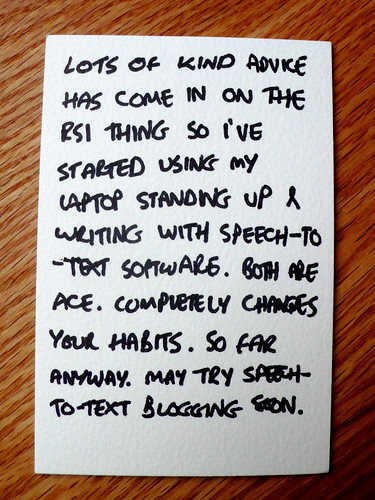 LOTS OF KIND ADVICE
HAS COME IN ON THE
RSI THING SO I'VE
STARTED USING MY
LAPTOP STANDING UP &
WRITING WITH SPEECH-TO
-TEXT SOFTWARE. BOTH ARE
ACE. COMPLETELY CHANGES
YOUR HABITS. SO FAR
ANYWAY. MAY TRY SPEECH-
TO-TEXT BLOGGING SOON.